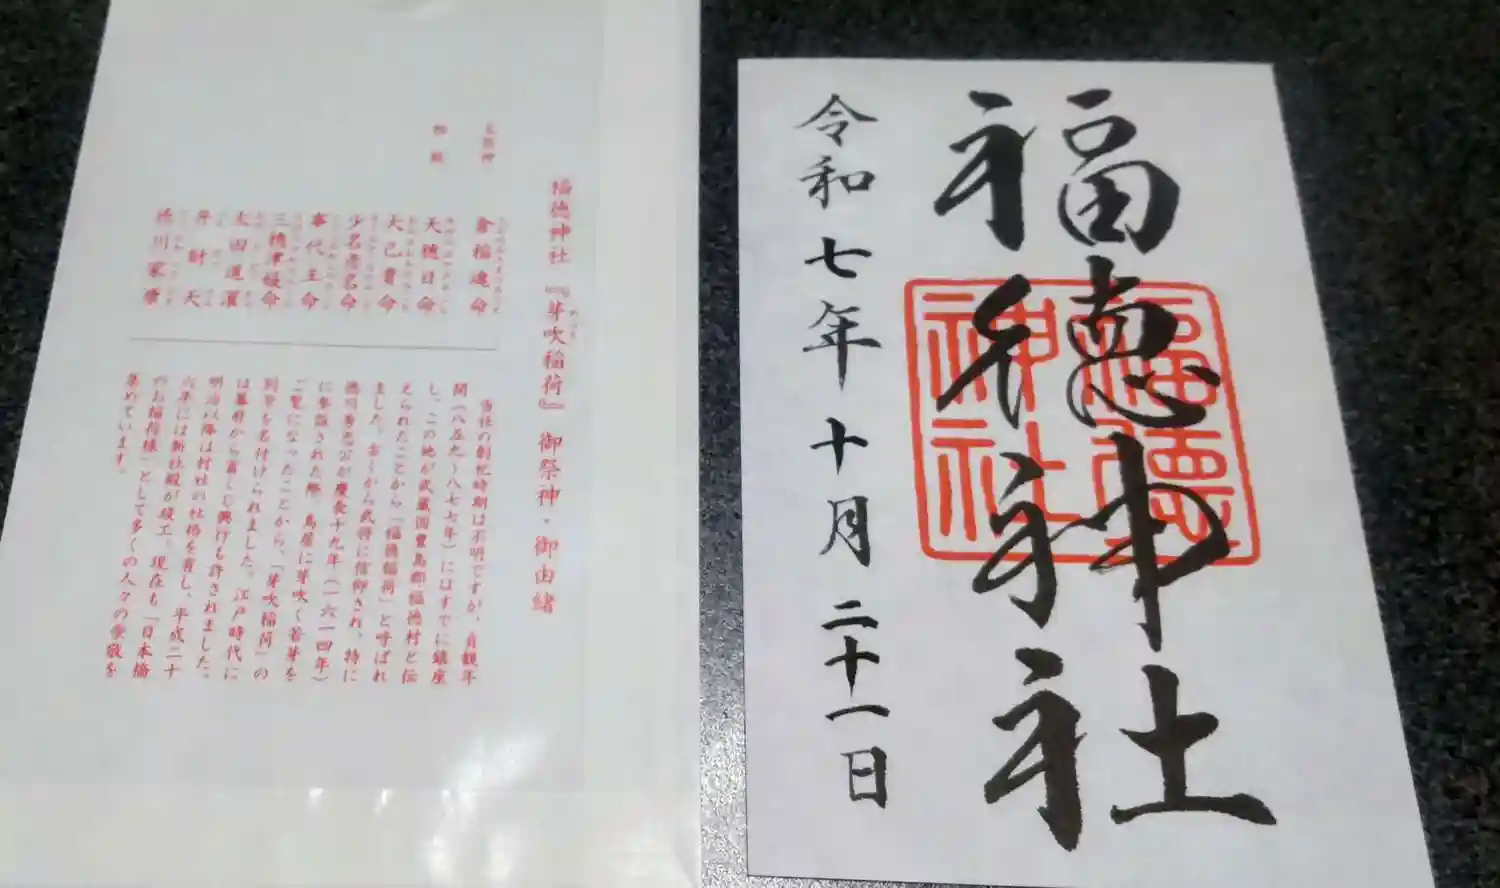 福徳神社
福徳神社
令和七年十月二十一日
福徳神社『芽吹稲荷』御祭神・御由緒
めぶき
主祭神
倉稲魂命
相殿
天穂日命
大己貴命
少名彦名命
事代主命
三穂津媛命
太田道灌
弁財天
徳川家康
当社の創祀時期は不明ですが、貞観年
間(八五九〜八七七年)にはすでに鎮座
し、この地が武蔵国豊島郡福徳村と伝
えられたことから「福徳稲荷」と呼ばれ
ました。古くから武将に信仰され、特に
徳川秀忠公が慶長十九年(一六一四年)
に参詣された際、鳥居に芽吹く若芽を
ご覧になったことから、「芽吹稲荷」の
別名を名付けられました。江戸時代に
は幕府から富くじ興行も許されました。
明治以降は村社の社格を有し、平成二十
六年には新社殿が竣工。現在も「日本橋
のお稲荷様」として多くの人々の崇敬を
集めています。